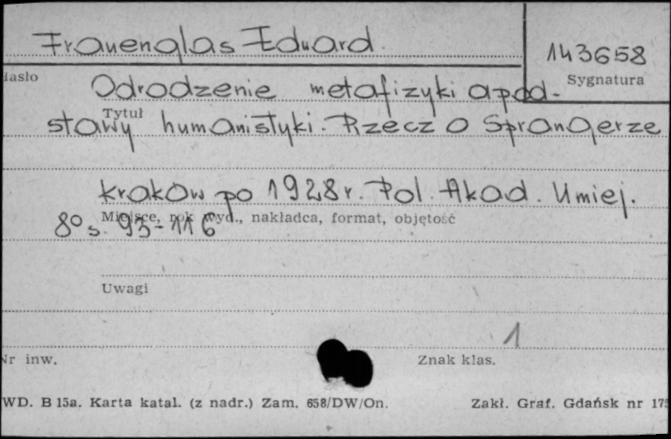 Frauenglas Eduard
143658
Hasło
Sygnatura
Odrodzenie metafizyki a pod-
Tytuł
stawy humanistyki. Rzecz o Sprangerze
Kraków po 1928 r. Pol. Akad. Umiej.
Miejsce, rok wyd., nakładca, format, objętość
8° s. 93-116
Uwagi
1
Nr inw.
Znak klas.
WD. B 15a. Karta katal. (z nadr.) Zam. 658/DW/On.
Zakł. Graf. Gdańsk nr 175